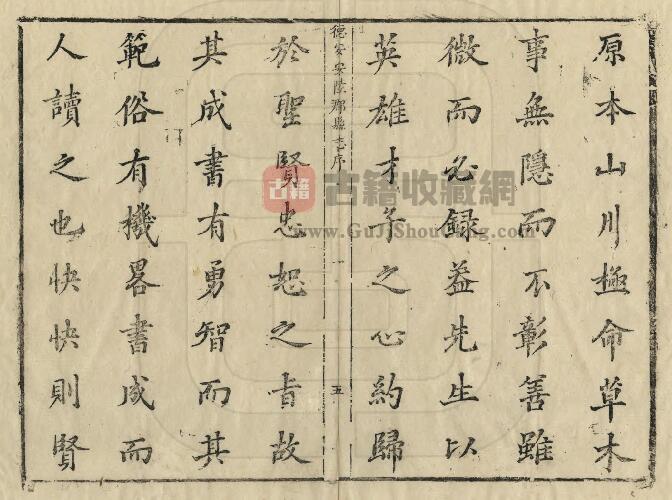 原本山川極命草木
事無隱而不彰善雖
微而必録葢先生以
英雄才子之心約歸
德安安陸郡縣志序
一
五
於聖賢忠恕之旨故
其成書有勇智而其
範俗有機畧書成而
人讀之也快快則賢
古籍
古籍收藏網
www.GuJiShouCang.com